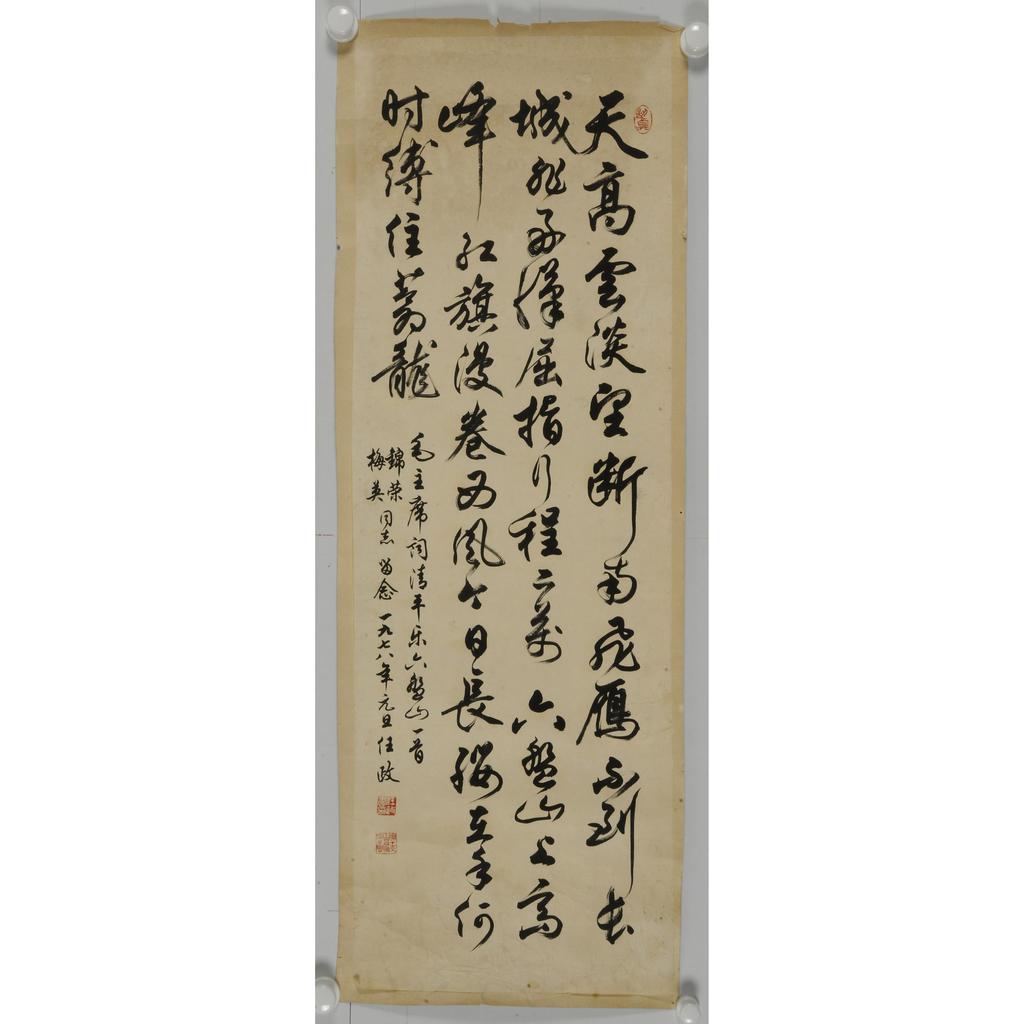 天高雲淡望断南飛雁不到长
城非好漢屈指行程二萬六盤山上高
峰红旗漫卷西风今日長纓在手何
时缚住蒼龍
毛主席词清平乐六盘山一首
錦荣
梅英
同志留念一九七八年元旦任政